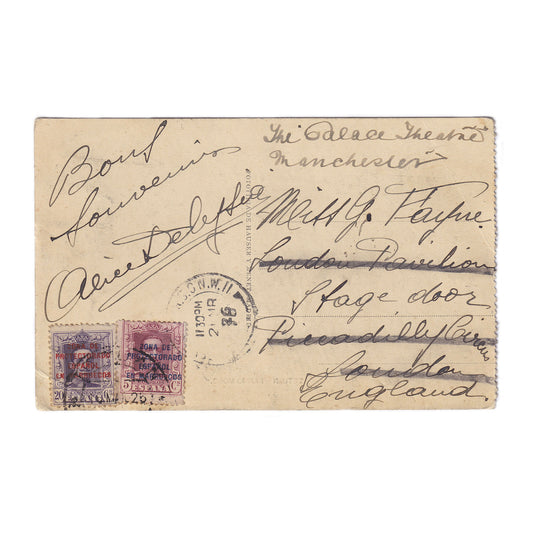 Bons
Souvenirs
Alice Delysia
The Palace Theatre
Manchester
Miss G. Hayne.
London Pavilion
Stage door
Piccadilly Circus
London
England.
FOTOTIPIA DE HAUSER Y MENET
N.W.11
1130PM
ZONA DE
PROTECTORADO
ESPAÑOL
EN MARRUECOS
20
ZONA DE
PROTECTORADO
ESPAÑOL
EN MARRUECOS
5
ESPAÑA